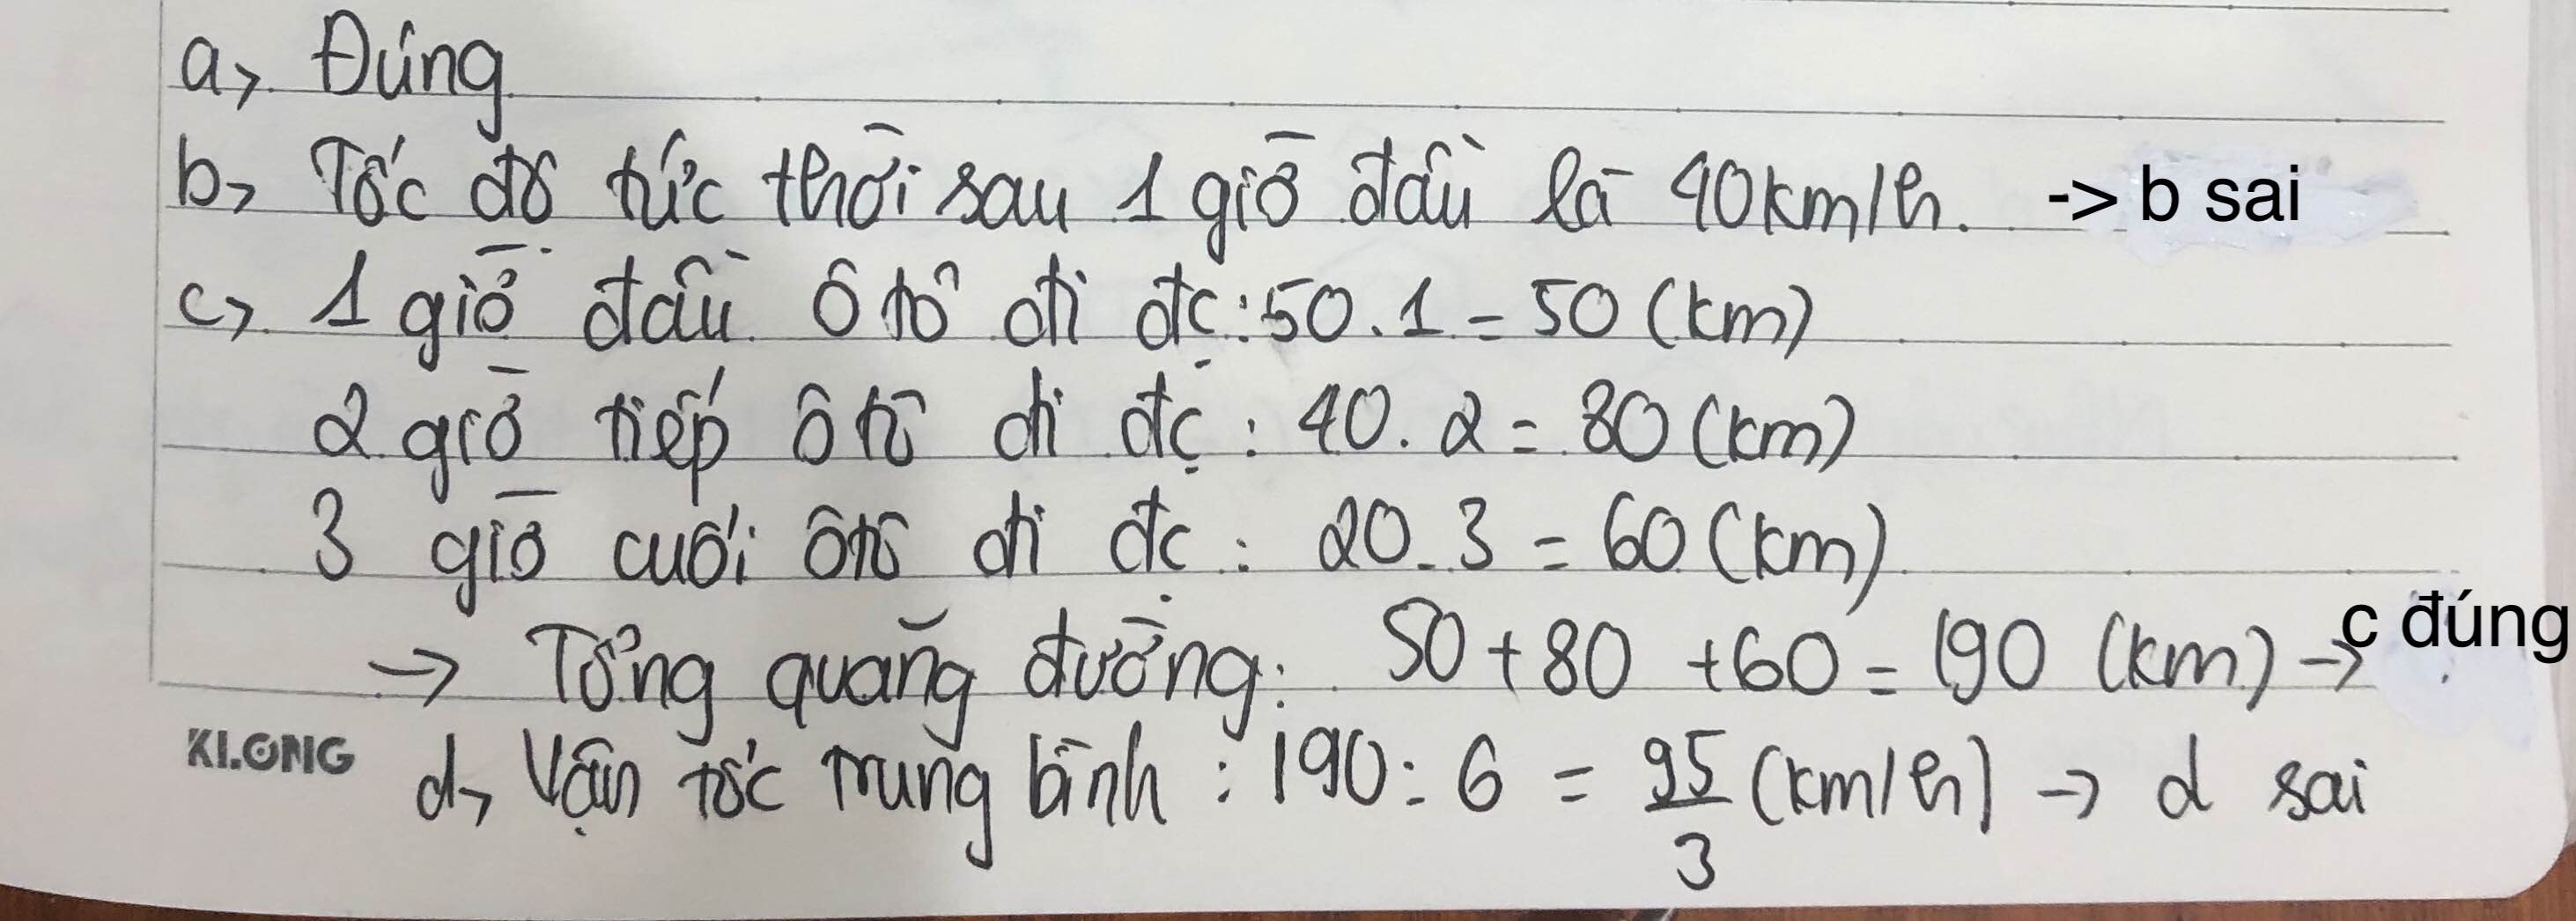 a, Đúng
b, Tốc độ tức thời sau 1 giờ đầu là 40km/h. -> b sai
c, 1 giờ đầu ô tô đi đc: 50.1 = 50 (km)
2 giờ tiếp ô tô đi đc: 40.2 = 80 (km)
3 giờ cuối ô tô đi đc: 20.3 = 60 (km)
→ Tổng quãng đường: 50 + 80 + 60 = 190 (km) → c đúng
KLONG
d, Vận tốc trung bình : 190 : 6 = 95/3 (km/h) → d sai